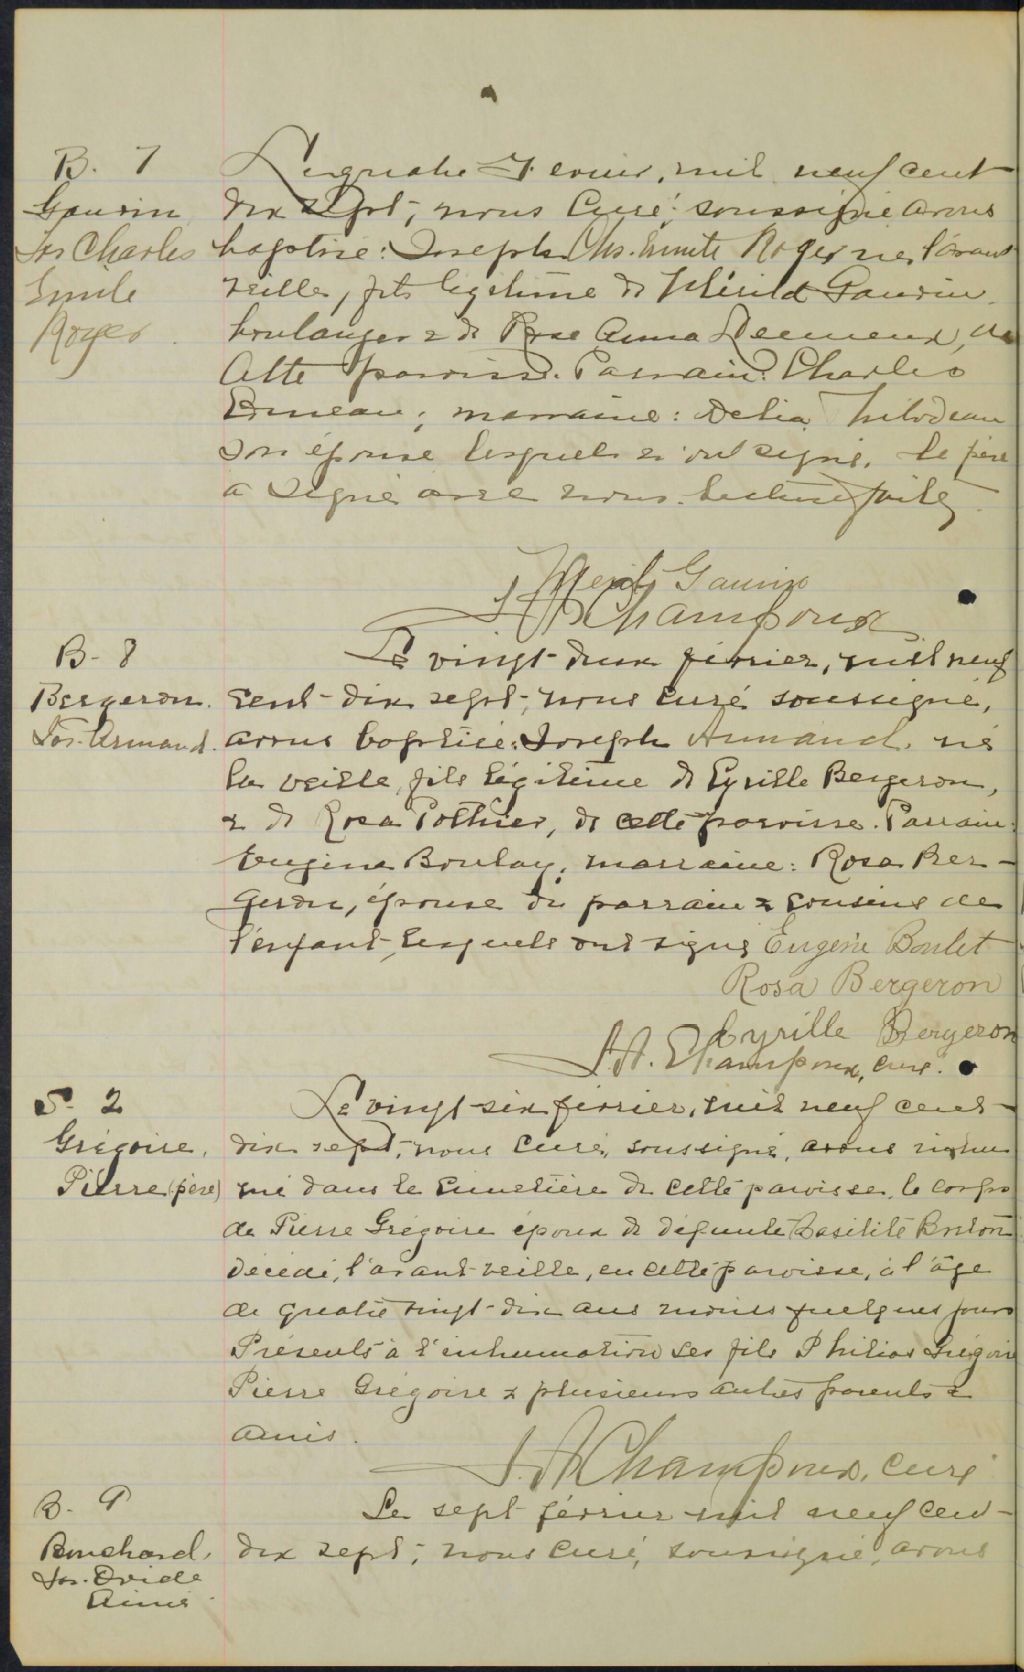 B. 7
Gauvin
Jos Charles
Emile
Roger
Le quatre Fevrier, mil neuf cent
dix sept, nous Curé soussigné avons
baptisé: Joseph Chs. Emile Roger né l'avant
veille, fils légitime de Gauvin
boulanger & de Rose Anna de
cette paroisse. Parrain: Charles
marraine: Delia
son épouse lesquels n'ont signé. Le père
a signé avec nous. Lecture faite
Gauvin
J. A. Champoux
B- 8
Bergeron.
Jos. Armand.
Le vingt-deux février, mil neuf
cent-dix sept, nous curé soussigné,
avons baptisé: Joseph Armand, né
la veille, fils légitime de Cyrille Bergeron,
& de Rosa Pothier, de cette paroisse. Parrain:
Eugène Boulay; marraine: Rosa Ber-
geron, épouse du parrain & cousins de
l'enfant, lesquels ont signé Eugène Boulet
Rosa Bergeron
Cyrille Bergeron
J. A. Champoux, curé.
S- 2
Grégoire,
Pierre (père)
Le vingt-six février, mil neuf cent-
dix sept, nous Curé, soussigné, avons inhu
mé dans le cimetière de cette paroisse, le corps
de Pierre Grégoire époux de défunte Basilite Breton
décédé, l'avant-veille, en cette paroisse, à l'âge
de quatre vingt-dix ans moins quelques jours
Présents à l'inhumation ses fils Philias Grégoire
Pierre Grégoire & plusieurs autres parents &
amis.
J. A. Champoux, curé
B- 9
Bouchard,
Jos. Ovide
Aimé
Le sept février mil neuf cent-
dix sept, nous curé, soussigné, avons